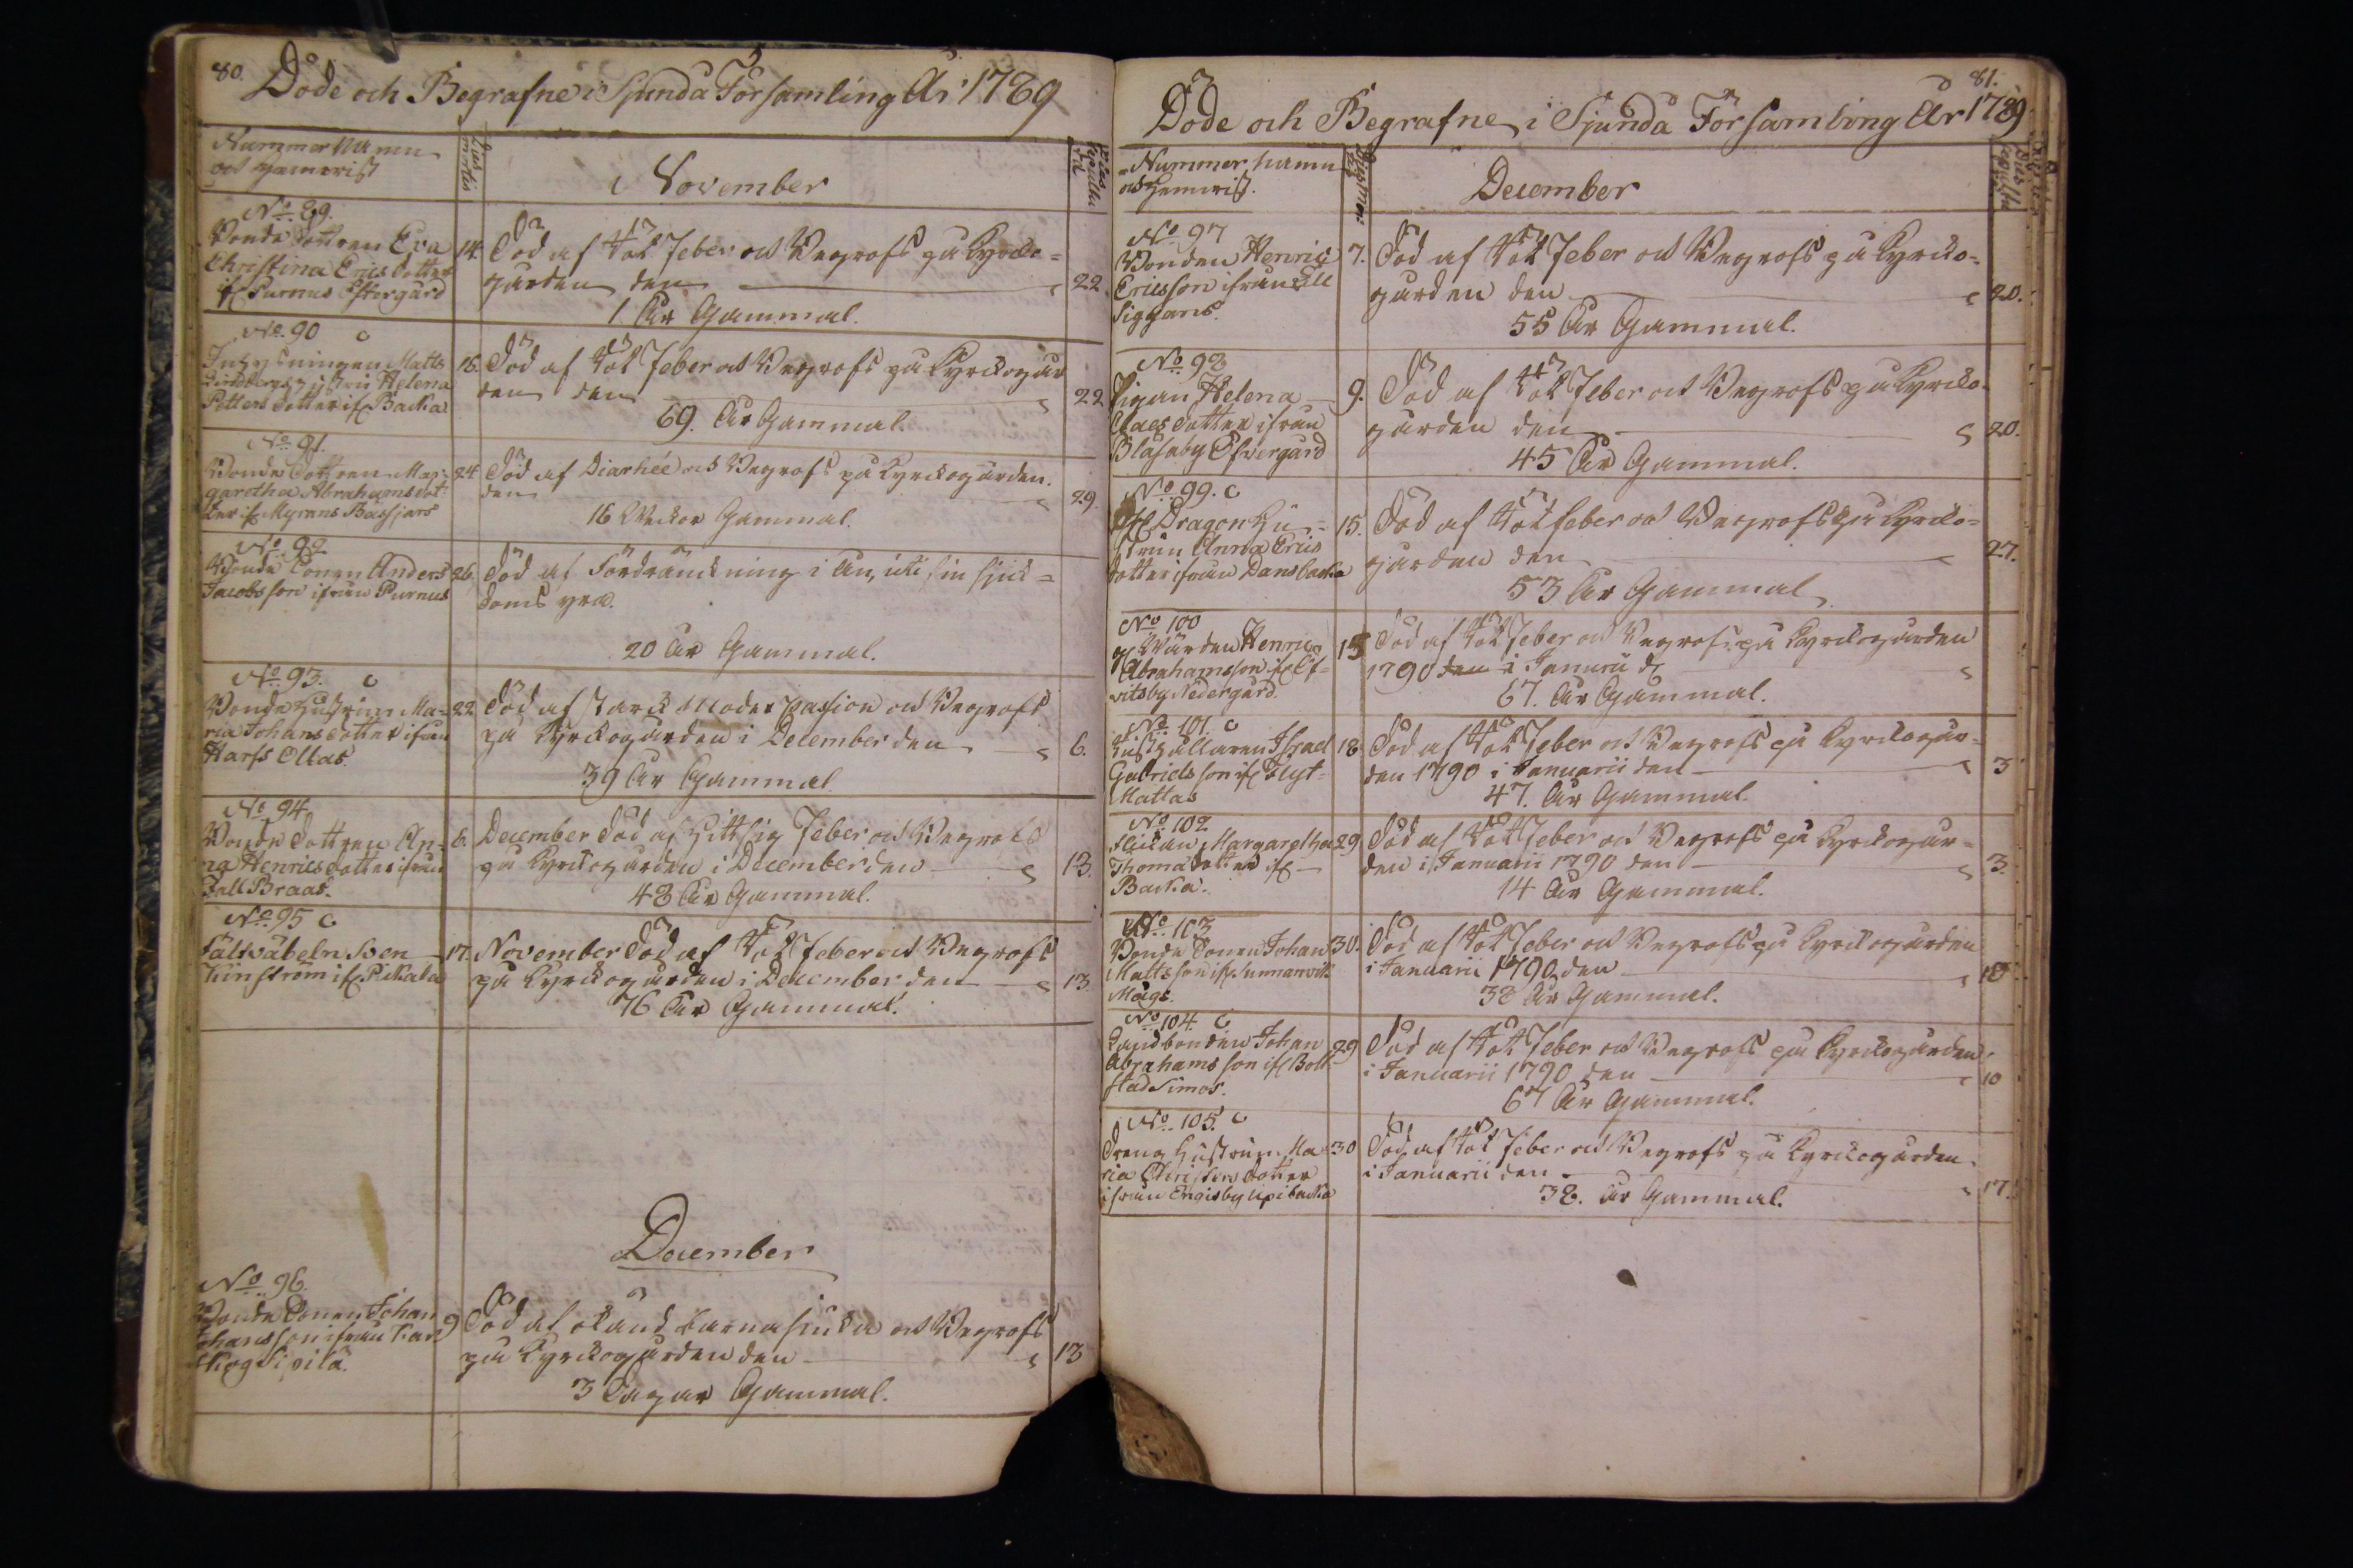 80.
Döde och Begrafne i Sjundå Församling År 1789
Nummer Namn
och Hemvist
Dies
mortis
November
Dies
sepultu
ræ
No. 89.
Bonde Dottren Eva
Christina Erics dotter
if Purnus Öftergård
14.
Död af Röt Feber och Begrofs på Kyrcko=
gården den
22
1 År Gammal.
No. 90
Inhysningen Matts
Lindbergs hustru Helena
Petters dotter if Backa
16.
Död af Röt feber och Begrofs på Kyrckogår
den den
22
69. År Gammal.
No. 91.
Bonde Dottren Mar=
garetha Abrahams dot=
ter if Myrans Bassjars
24.
Död af Diarhée och Begrofs på Kyrckogården.
den
29.
16 Weckor Gammal.
No. 92
Bonde Sonen Anders
Jacobsson ifrån Purnus
26.
Död af Fördränckning i ån, uti sin sjuk=
doms yra.
20 År Gammal.
No. 93.
Bonde Hustrun Ma=
ria Johans dotter ifrån
Harfs Ollas.
22
Död af starck Moder passion och Begrofs
på Kyrckogården i December den
6.
39 År Gammal.
No. 94.
Bonde Dottren An=
na Henrics dotter ifrån
Braas.
6.
December Död af Hittsig Feber och Begrofs
på Kyrckogården i December den
13.
48 År Gammal.
No. 95
Fältväbeln Sven
if Pikala
17.
November Död af Röt Feber och Begrofs
på Kyrckogården i December den
13.
76 År Gammal.
December
No. 96.
Bonde Sonen Johan
Johansson ifrån Kar
skog Sipilä.
9
Död af okänd barnasjuka och Begrofs
på Kyrckogården den
13
3 Dagar Gammal.
81.
Döde och Begrafne i Sjundå Församling År 1789
Nummer, namn
och Hemvist.
Dies mor:
tis
December
Dies
sepultu
No. 97
Bonden Henric
Ericsson ifrån
Siggans.
7.
Död af Röt Feber och Begrofs på Kyrcko=
gården den
20.
55 År Gammal.
No. 98
Pigan Helena
Claes dotter ifrån
Blåsaby Öfvergård
9.
Död af Röt Feber och Begrofs på Kyrcko=
gården den
20.
45 År Gammal.
No. 99.
Dragon Hu=
strun Anna Erics
dotter ifrån Dansbacka
15.
Död af Röt feber och Begrofs på Kyrcko=
gården den
27.
53 År Gammal
No. 100
Henric
Abrahamsson if
vitsby Nedergård.
15
Död af Röt Feber och Begrofs på Kyrckogården
1790 den i Januarii
67. År Gammal.
No. 101.
Israel
Gabrielsson if
Mattas
18.
Död af Röt Feber och Begrofs på Kyrckogår=
den 1790 i Januarii den
3
47. År Gammal.
No. 102
Flickan Margaretha
Thomædotter if
Backa.
29
Död af Röt Feber och Begrofs på Kyrckogår=
den i Januarii 1790 den
3.
14 År Gammal.
No. 103
Bonde Sonen Johan
Mattsson if Sunnanvik
Mågs.
30.
Död af Röt Feber och Begrofs på Kyrckogården
i Januarii 1790 den
10
38 År Gammal.
No. 104.
Landbonden Johan
Abrahamsson if Bolt=
stad Simos.
29
Död af Röt Feber och Begrofs på Kyrckogården
i Januarii 1790 den
10
67 År Gammal.
No. 105.
Dreng Hustrun Ma
ria Christers dotter
ifrån Engisby Upibacka
30
Död af Röt Feber och Begrofs på Kyrckogården
i Januarii den
17.
38. År Gammal.